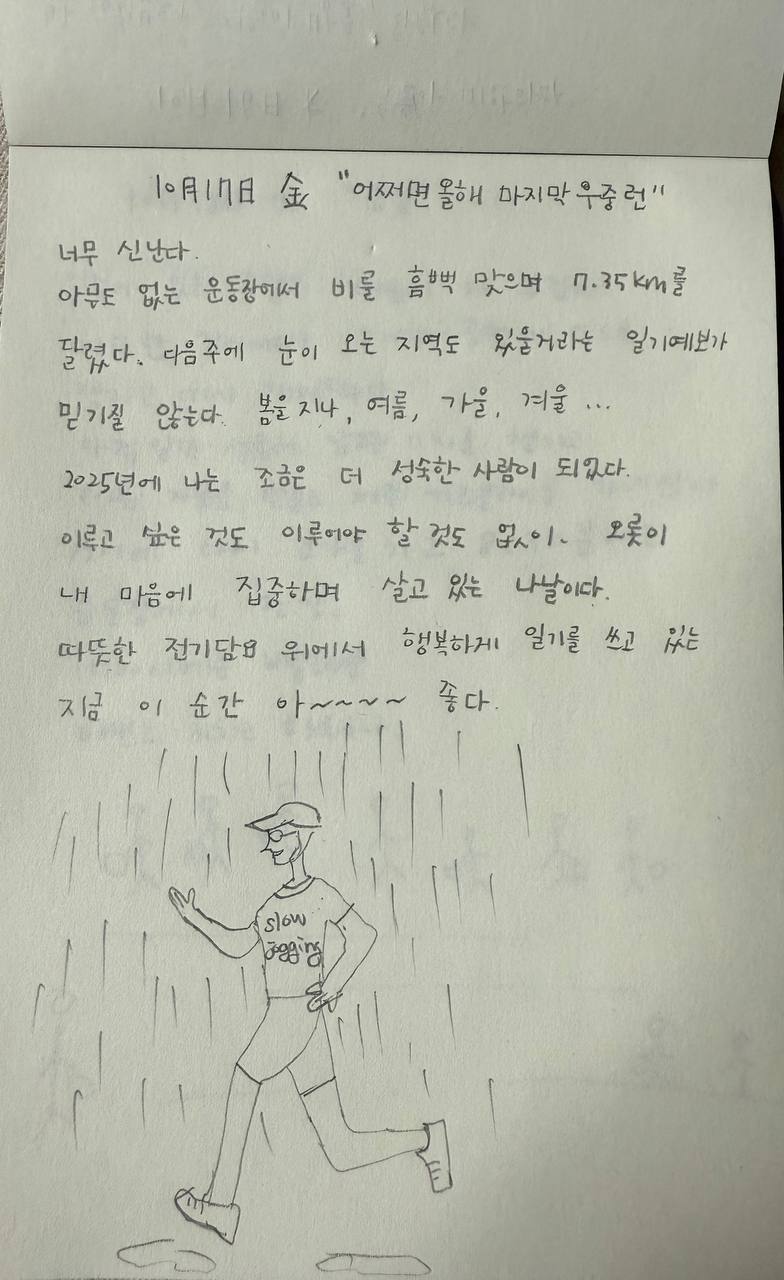 10月17日 金 "어쩌면 올해 마지막 우중런"
너무 신난다.
아무도 없는 운동장에서 비를 흠뻑 맞으며 7.35km를
달렸다. 다음주에 눈이 오는 지역도 있을거라는 일기예보가
믿기질 않는다. 봄을 지나, 여름, 가을, 겨울 ...
2025년에 나는 조금은 더 성숙한 사람이 되었다.
이루고 싶은 것도 이루어야 할 것도 없이. 오롯이
내 마음에 집중하며 살고 있는 나날이다.
따뜻한 전기담요 위에서 행복하게 일기를 쓰고 있는
지금 이 순간 아~~~~ 좋다.
slow
jogging